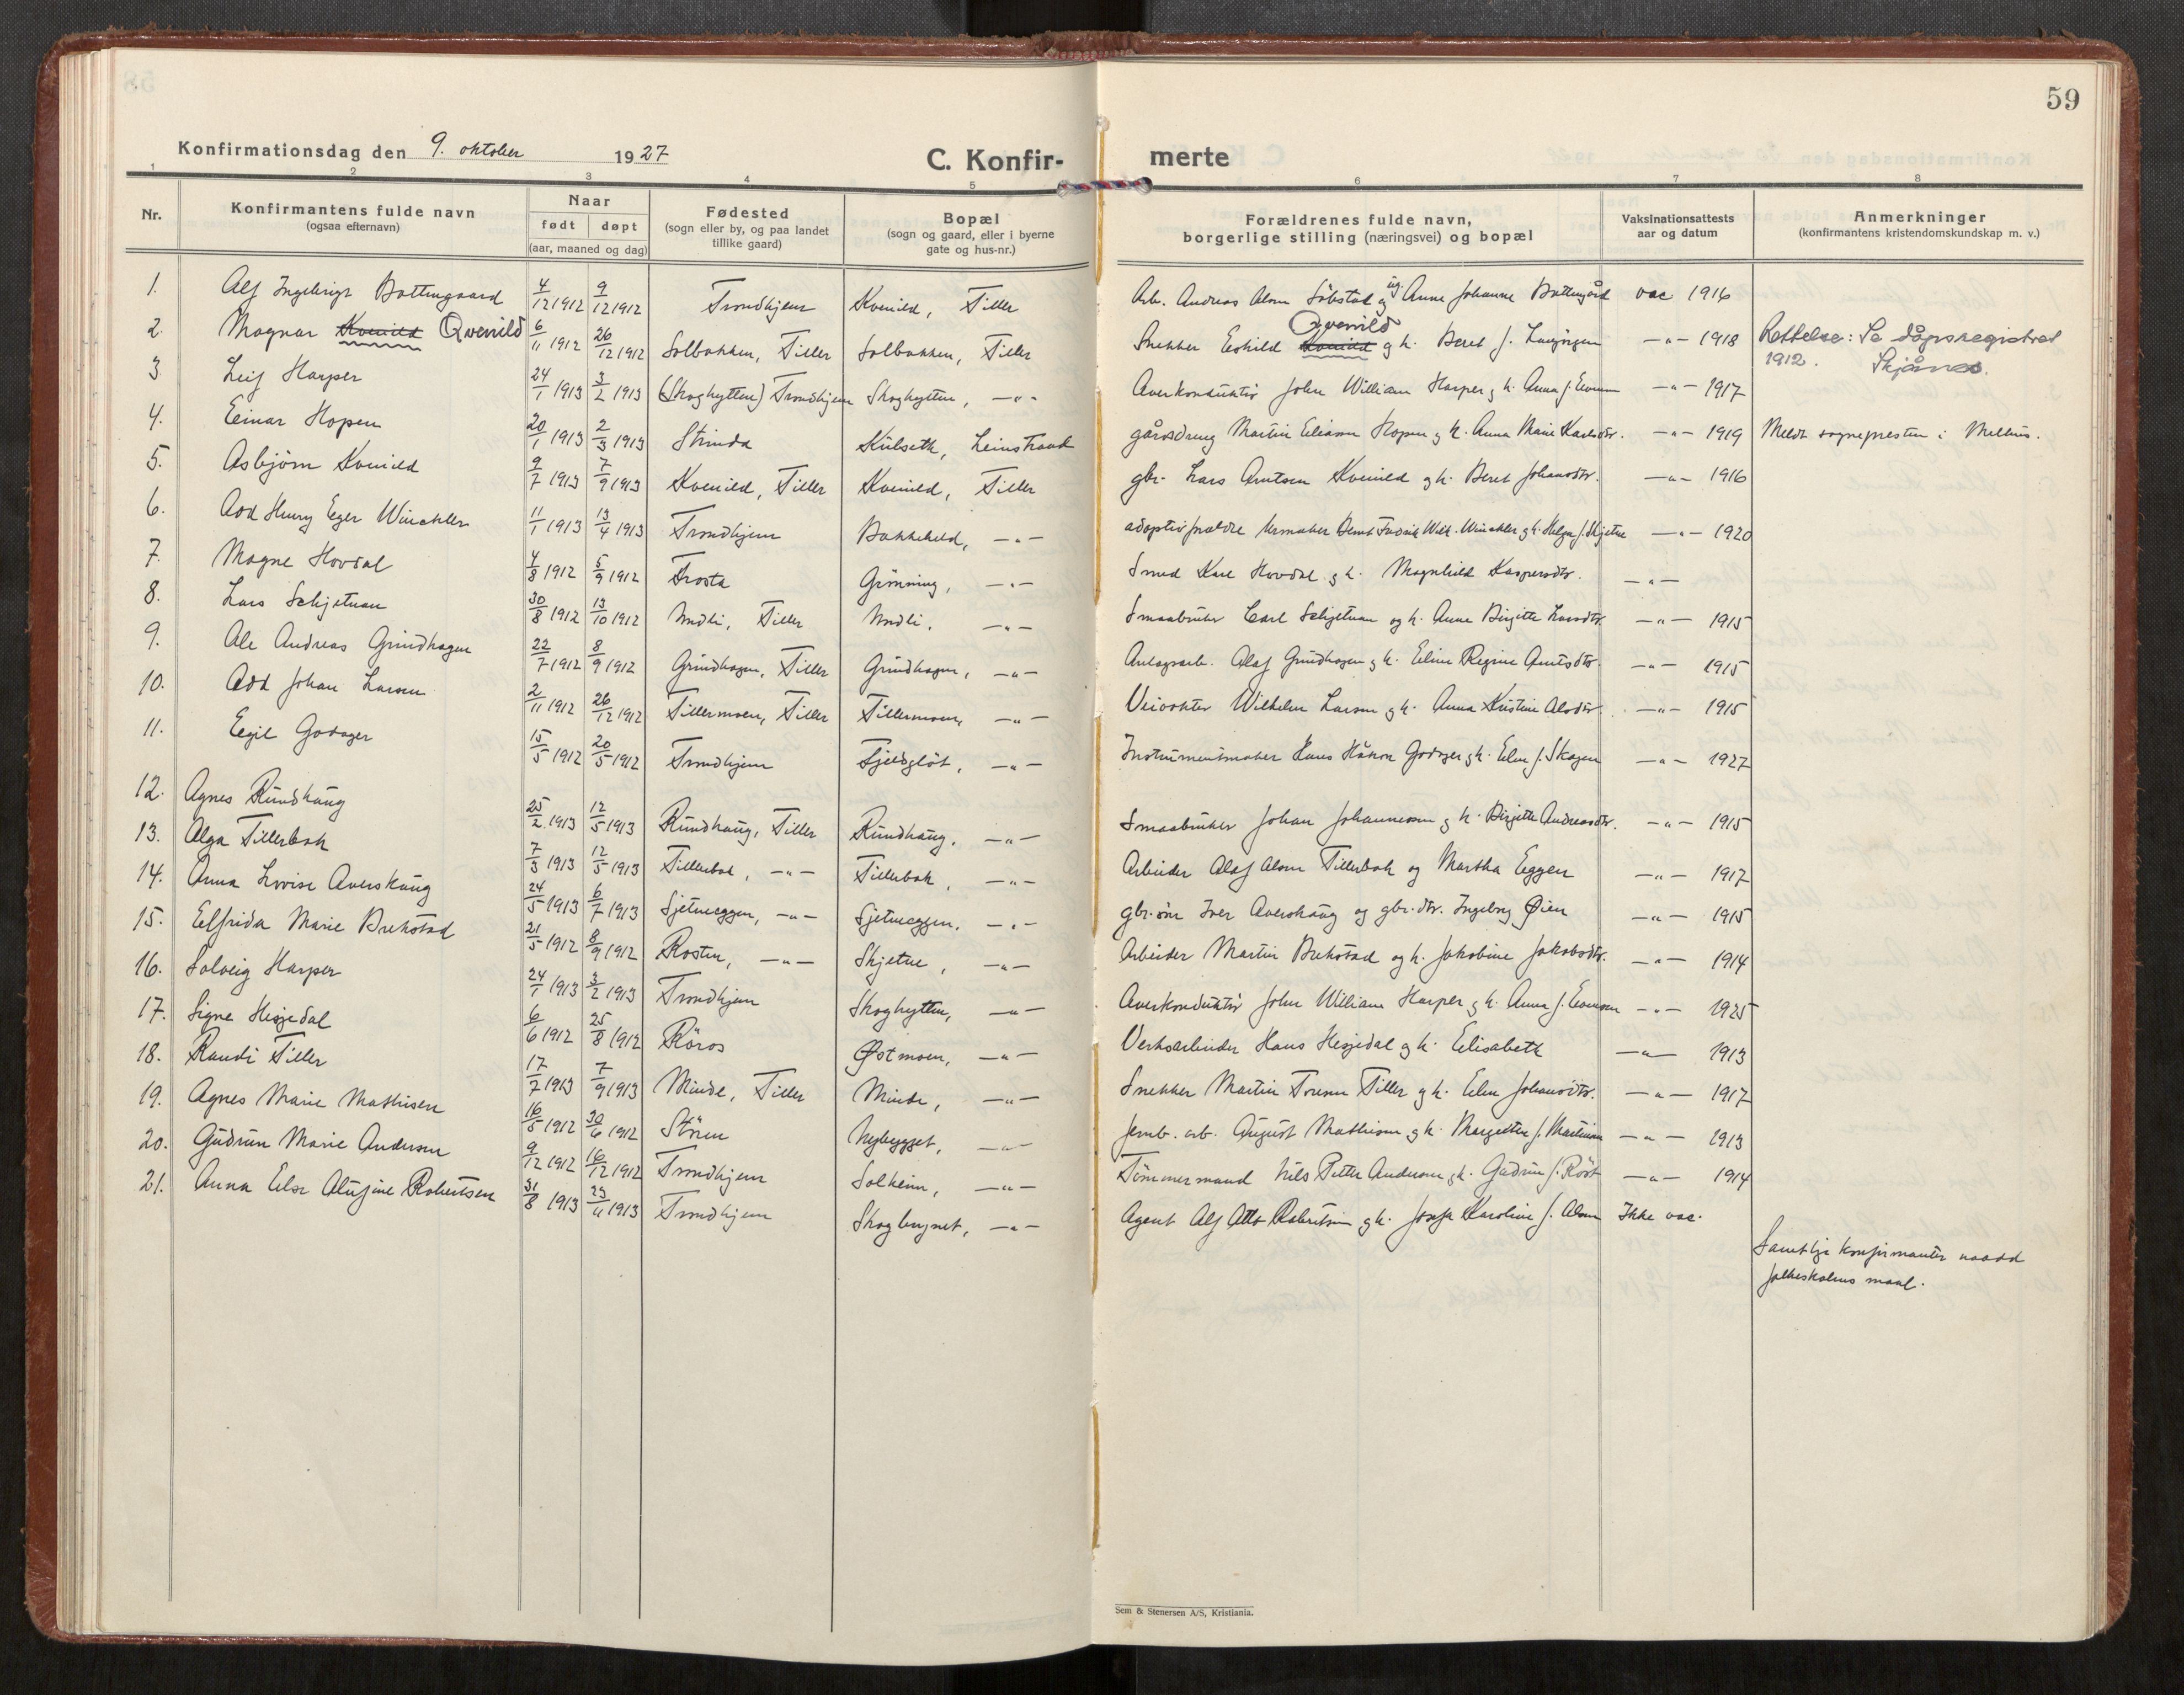 59
Konfirmationsdag den 9. oktober 1927
C. Konfir- merte
1 2 3 4 5 6 7 8
Nr. | Konfirmantens fulde navn (ogsaa efternavn) | Naar født | døpt (aar, maaned og dag) | Fødested (sogn eller by, og paa landet tillike gaard) | Bopæl (sogn og gaard, eller i byerne gate og hus-nr.) | Forældrenes fulde navn, borgerlige stilling (næringsvei) og bopæl | Vaksinationsattests aar og datum | Anmerkninger (konfirmantens kristendomskundskap m. v.)
1. Alf Ingebrigt Bottengaard 4/12 1912 9/12 1912 Trondhjem Kvenild, Tiller Arb. Andreas Olsen Søbstad og ug. Anne Johanne Bottengård vac 1916
2. Magnar Kvenild Qvenild 6/11 1912 26/12 1912 Solbakken, Tiller Solbakken, Tiller Snekker Eskild Kvenild Qvenild g h. Beret f. Langørgen —"— 1918 Rettelse: Se dåpsregistret 1912. Skjånes.
3 Leif Harper 24/1 1913 3/2 1913 (Skoghytten) Trondhjem Skoghytten, —"— Overkonduktør John William Harper g h. Anna f. Evensen —"— 1917
4. Einar Hopen 20/1 1913 2/3 1913 Strinda Kulseth, Leinstrand gårdsdreng Martin Eliasen Hopen g h. Anna Marie Karlsdtr. —"— 1919 Meldt sognepresten i Melhus.
5. Asbjørn Kvenild 9/7 1913 7/9 1913 Kvenild, Tiller Kvenild, Tiller gbr. Lars Arntsen Kvenild g h. Beret Johansdtr. —"— 1916
6. Odd Henry Eger Winckler 11/1 1913 13/4 1913 Trondhjem Bakkeheld, —"— adoptivforeldre Urmaker Bernt Fredrik Wilh. Winckler g h. Helga f. Skjetne —"— 1920
7. Magne Hovdal 4/8 1912 5/9 1912 Frosta Grønning, —"— Smed Karl Hovdal g h. Magnhild Kaspersdtr. —"—
8. Lars Schjetnan 30/8 1912 13/10 1912 Undli, Tiller Undli. —"— Smaabruker Carl Schjetnan og h. Anne Birgitte Larsdtr. —"— 1915
9. Ole Andreas Grindhagen 22/7 1912 8/9 1912 Grindhagen, Tiller Grindhagen, —"— Anlægsarb. Olaf Grindhagen g h. Eline Regine Arntsdtr. —"— 1915
10. Odd Johan Larsen 2/11 1912 26/12 1912 Tillermoen, Tiller Tillermoen, —"— Veivokter Wilhelm Larsen g h. Anna Kristine Olsdtr. —"— 1915
11. Egil Godager 15/5 1912 20/5 1912 Trondhjem Fjeldgløt, —"— Instrumentmaker Hans Håkon Godager g h. Elen f. Skagen —"— 1927
12. Agnes Rundhaug 25/2 1913 12/5 1913 Rundhaug, Tiller Rundhaug, —"— Smaabruker Johan Johannessen g h. Birgitte Andreasdtr. —"— 1915
13. Olga Tillerbak 7/3 1913 12/5 1913 Tillerbak, —"— Tillerbak, —"— Arbeider Olaf Olsen Tillerbak og Martha Eggen —"— 1917
14. Anna Lovise Overskaug 24/5 1913 6/7 1913 Sjetneeggen, —"— Sjetneeggen, —"— gbr. søn Iver Overskaug og gbr. dtr. Ingeborg Øien —"— 1915
15. Elfrida Marie Brekstad 21/5 1912 8/9 1912 Rosten, —"— Skjetne, —"— Arbeider Martin Brekstad og h. Jakobine Jakobsdtr. —"— 1914
16. Solveig Harper 24/1 1913 3/2 1913 Trondhjem Skoghytten, —"— Overkonduktør John William Harper g h. Anna f. Evensen —"— 1925
17. Signe Hesjedal 6/6 1912 25/8 1912 Røros Østmoen, —"— Verksarbeider Hans Hesjedal g h. Elisabeth —"— 1913
18. Randi Tiller 17/7 1913 7/9 1913 Minde, Tiller Minde, —"— Snekker Martin Toresen Tiller g h. Elen Johansdtr. —"— 1917
19. Agnes Marie Mathisen 16/5 1912 30/6 1912 Støren Nybygget, —"— Jernb. arb. August Mathisen g h. Margrethe f. Martinsen —"— 1913
20. Gudrun Marie Andersen 9/12 1912 16/12 1912 Trondhjem Solheim, —"— Tømmermand Nils Petter Andersen g h. Gudrun f. Røst —"— 1914
21. Anna Else Alufine Robertsen 31/8 1913 23/11 1913 Trondhjem Skogbrynet, —"— Agent Alf Otto Robertsen g h. Josefa Karoline f. Olsen Ikke vac.
Samtlige konfirmanter naadd
folkeskolens maal.
Sem & Stenersen A/S, Kristiania.